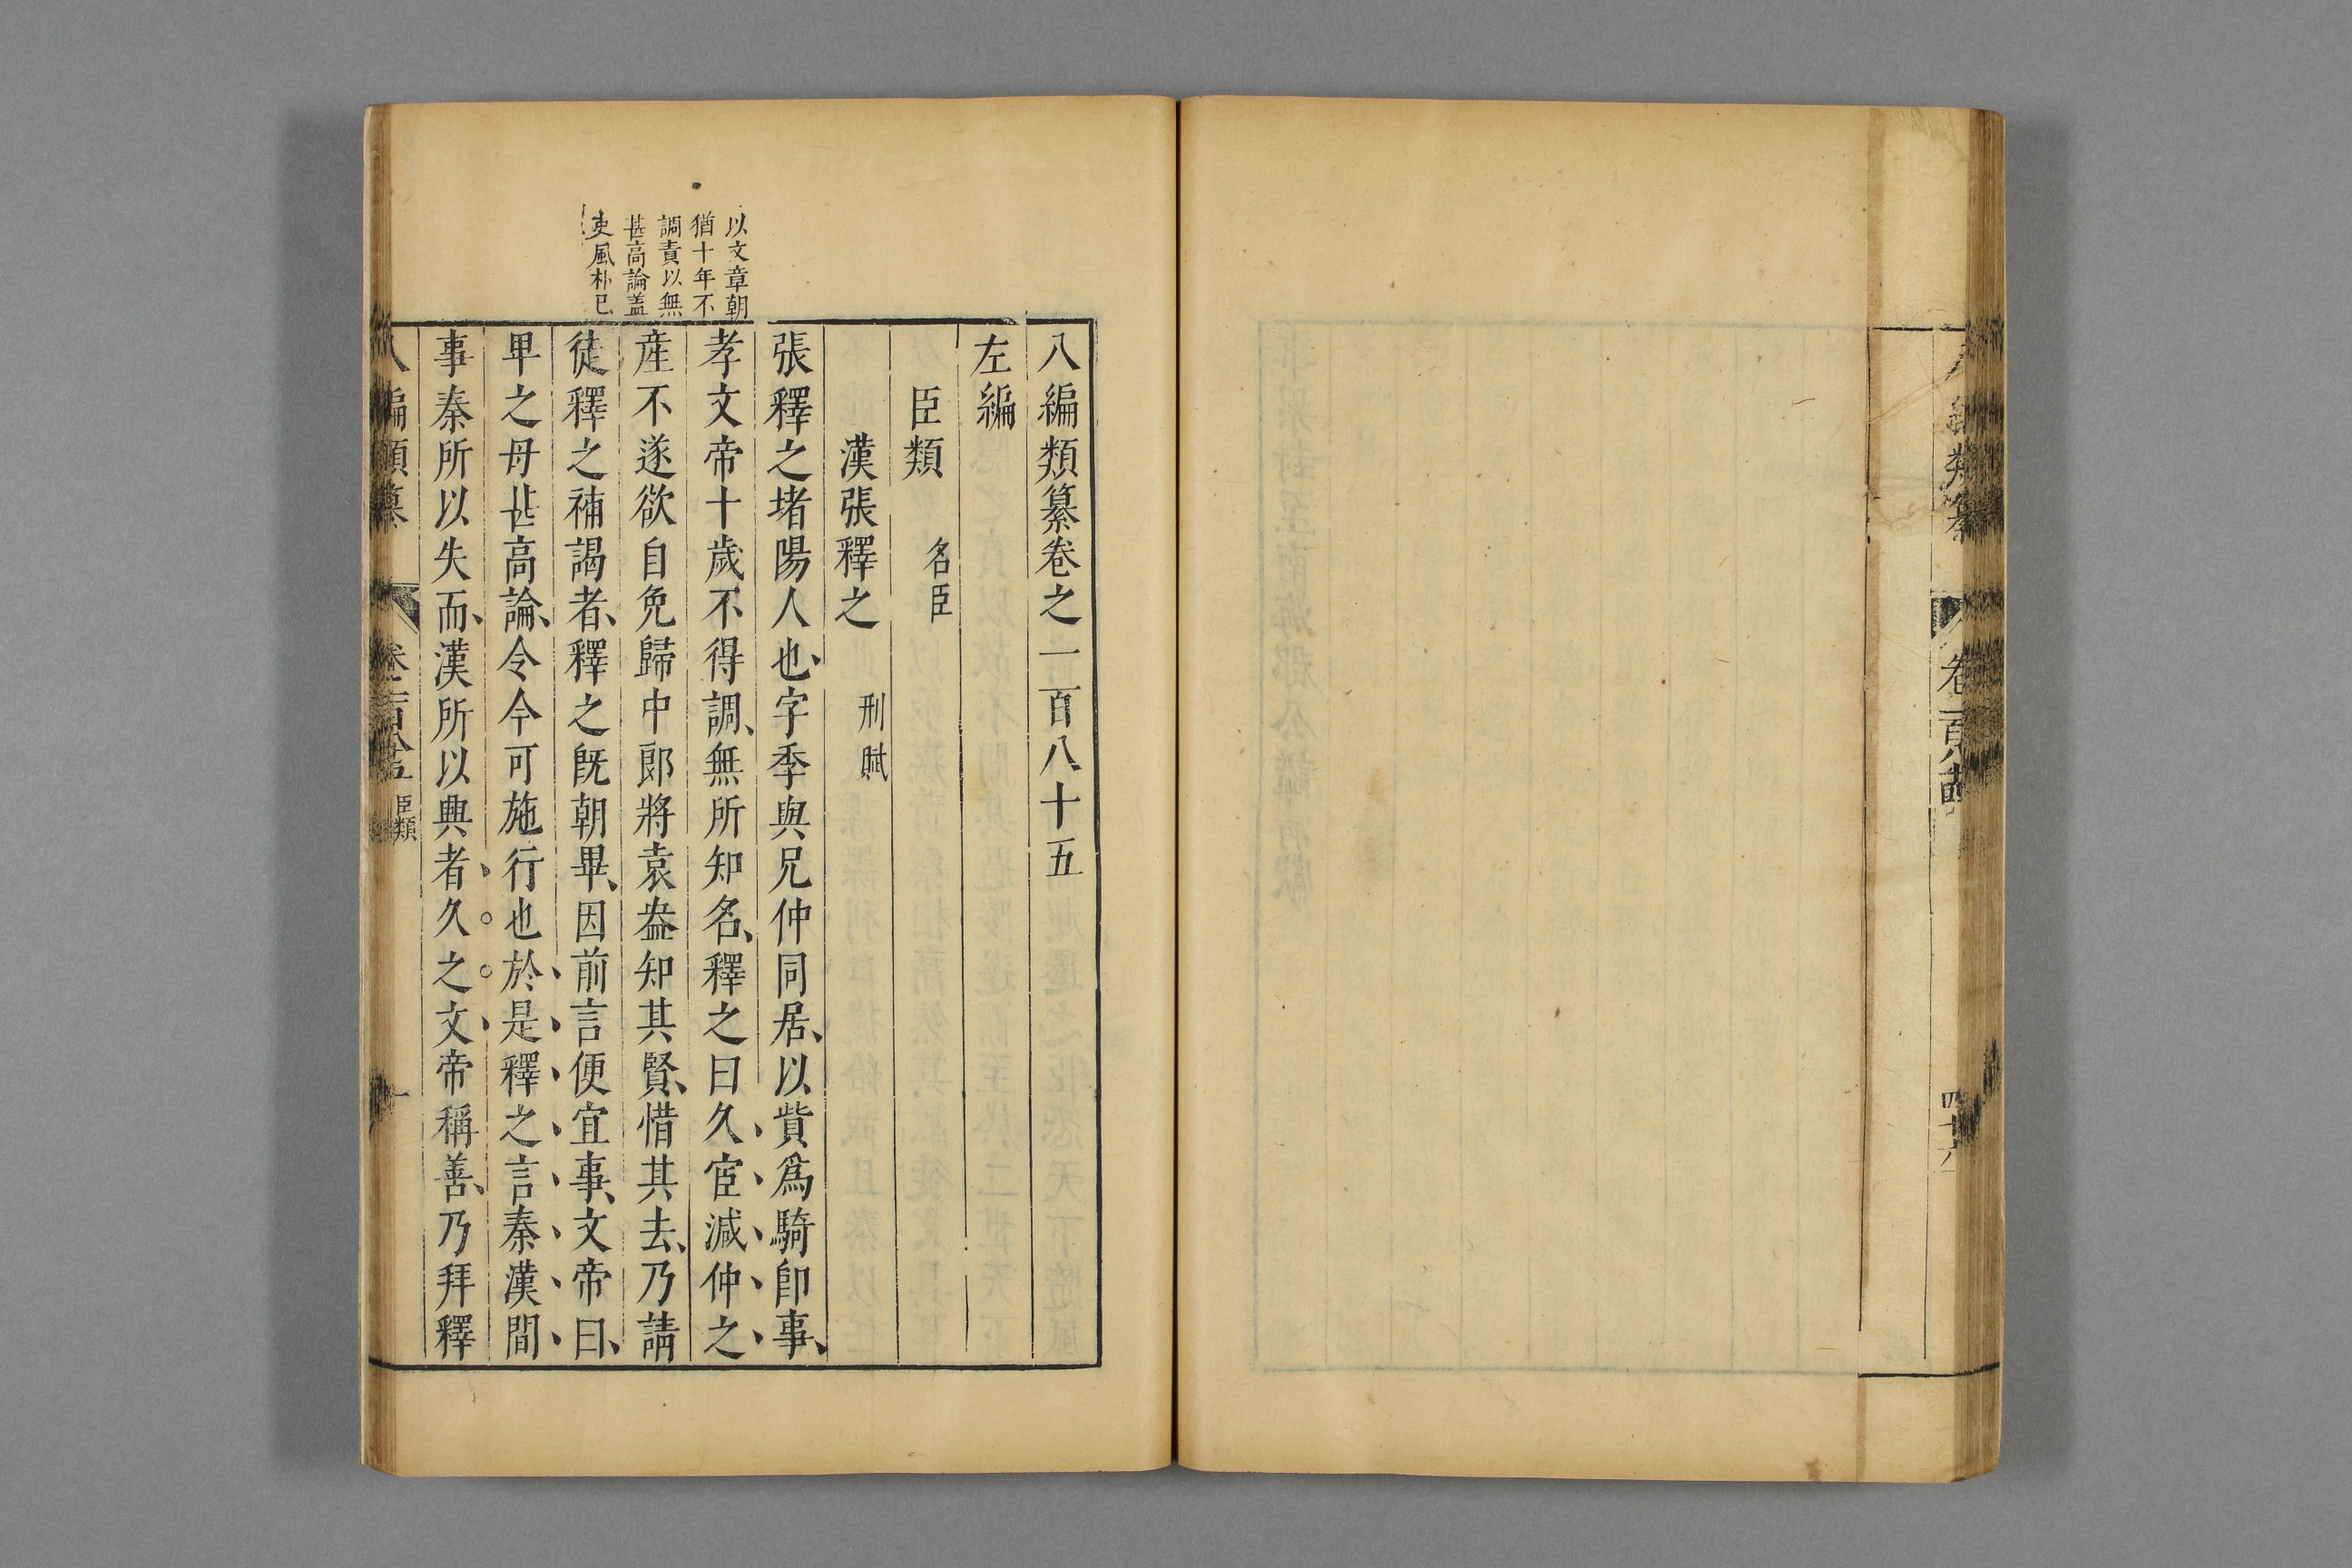 八編類纂
卷一百八十四
四十六
八編類纂卷之一百八十五
左編
臣類　名臣
漢張釋之　刑賦
張釋之堵陽人也、字季與兄仲同居、以貲爲騎郎事、
孝文帝十歲不得調、無所知名、釋之曰久宦減仲之
産不遂欲自免歸中郎將袁盎知其賢、惜其去、乃請
徒釋之補謁者、釋之旣朝畢、因前言便宜事、文帝曰、
卑之毋甚高論、令今可施行也於是釋之言秦漢間
事秦所以失而、漢所以興者久之文帝稱善、乃拜釋
以文章朝
猶十年不
調責以無
甚高論蓋
吏風朴已
八編類纂
卷一百八十五
臣類
一